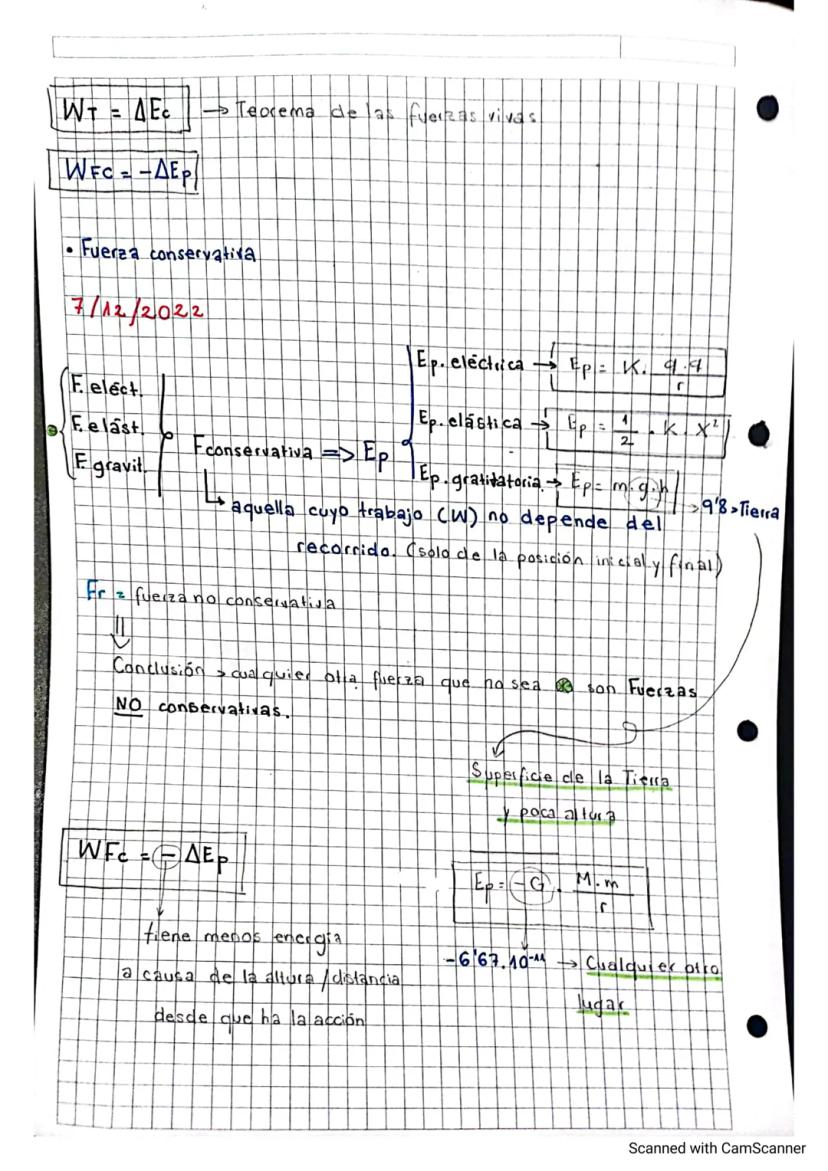 WT = ΔEc → Teorema de las fuerzas vivas
WFC = -ΔEp
• Fuerza conservativa
7/12/2022
F. eléct.
F. elást.
F. gravit.
Fconservativa => Ep
Ep. eléctrica → Ep = K. q.q/r
Ep. elástica → Ep = 1/2 . K. X²
Ep. gratitatoria → Ep = m.g.h → 9'8 > Tierra
aquella cuyo trabajo (W) no depende del
recorrido. (solo de la posición inicial y final)
Fr = fuerza no conservativa
Conclusión > cualquier otra fuerza que no sea ⊛ son Fuerzas
NO conservativas.
Superficie de la Tierra
y poca altura
WFc = - ΔEp
tiene menos energía
a causa de la altura / distancia
desde que ha la acción
Ep = -G . M.m/r
-6'67.10-11 → Cualquier otro
lugar
Scanned with CamScanner